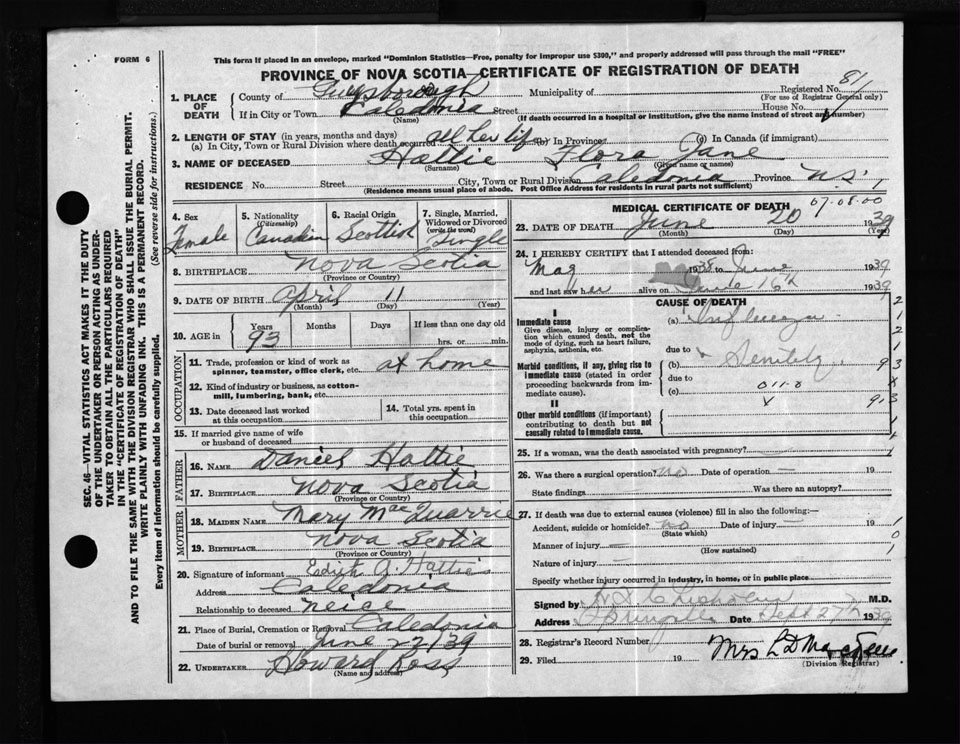 FORM 6
This form if placed in an envelope, marked "Dominion Statistics—Free, penalty for improper use $300," and properly addressed will pass through the mail "FREE"
PROVINCE OF NOVA SCOTIA—CERTIFICATE OF REGISTRATION OF DEATH
SEC. 46—VITAL STATISTICS ACT MAKES IT THE DUTY
OF THE UNDERTAKER OR PERSON ACTING AS UNDER-
TAKER TO OBTAIN ALL THE PARTICULARS REQUIRED
IN THE "CERTIFICATE OF REGISTRATION OF DEATH"
AND TO FILE THE SAME WITH THE DIVISION REGISTRAR WHO SHALL ISSUE THE BURIAL PERMIT.
WRITE PLAINLY WITH UNFADING INK. THIS IS A PERMANENT RECORD.
Every item of information should be carefully supplied. (See reverse side for instructions.)
1. PLACE OF DEATH County of Guysborough Municipality of Registered No. 81
(For use of Registrar General only)
If in City or Town Caledonia Street House No.
(Name) (If death occurred in a hospital or institution, give the name instead of street and number)
2. LENGTH OF STAY (in years, months and days)
(a) In City, Town or Rural Division where death occurred all her life (b) In Province (c) In Canada (if immigrant)
3. NAME OF DECEASED Hattie Flora Jane
(Surname) (Given name or names)
RESIDENCE No. Street City, Town or Rural Division Caledonia Province N.S.
(Residence means usual place of abode. Post Office Address for residents in rural parts not sufficient)
4. Sex Female
5. Nationality (Citizenship) Canadian
6. Racial Origin Scottish
7. Single, Married, Widowed or Divorced (write the word) Single
8. BIRTHPLACE Nova Scotia
(Province or Country)
9. DATE OF BIRTH April 11
(Month) (Day) (Year)
10. AGE in Years 93 Months Days If less than one day old hrs. or min.
OCCUPATION
11. Trade, profession or kind of work as spinner, teamster, office clerk, etc. at home
12. Kind of industry or business, as cotton-mill, lumbering, bank, etc.
13. Date deceased last worked at this occupation
14. Total yrs. spent in this occupation.
15. If married give name of wife or husband of deceased
FATHER
16. NAME Daniel Hattie
17. BIRTHPLACE Nova Scotia
(Province or Country)
MOTHER
18. MAIDEN NAME Mary MacQuarrie
19. BIRTHPLACE Nova Scotia
(Province or Country)
20. Signature of informant Edith A. Hattie
Address Caledonia
Relationship to deceased neice
21. Place of Burial, Cremation or Removal Caledonia
Date of burial or removal June 22/39
22. UNDERTAKER Howard Ross
(Name and address)
MEDICAL CERTIFICATE OF DEATH 67-08-00
23. DATE OF DEATH June 20 1939
(Month) (Day) (Year)
24. I HEREBY CERTIFY that I attended deceased from:
May 193 June 1939
and last saw her alive on June 16th 1939
CAUSE OF DEATH
I
Immediate cause (a) Influenza
Give disease, injury or complication which caused death, not the mode of dying, such as heart failure, asphyxia, asthenia, etc.
due to
Morbid conditions, if any, giving rise to immediate cause (stated in order proceeding backwards from immediate cause). (b) Senility
due to
(c) 011-0
II
Other morbid conditions (if important) contributing to death but not causally related to immediate cause.
2
1
2
1
93
x
93
1
25. If a woman, was the death associated with pregnancy?
26. Was there a surgical operation? no Date of operation — 19
State findings Was there an autopsy?
27. If death was due to external causes (violence) fill in also the following:—
Accident, suicide or homicide? no Date of injury — 19
(State which)
Manner of injury —
(How sustained)
Nature of injury —
Specify whether injury occurred in industry, in home, or in public place
1
0
1
Signed by Chisholm M.D.
Address Date Sept 27th 1939
28. Registrar's Record Number
29. Filed 19 Mrs L D
(Division Registrar)